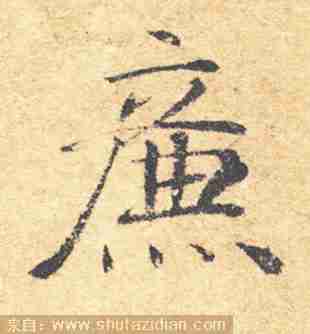 廉
来自：www.shufazidian.com